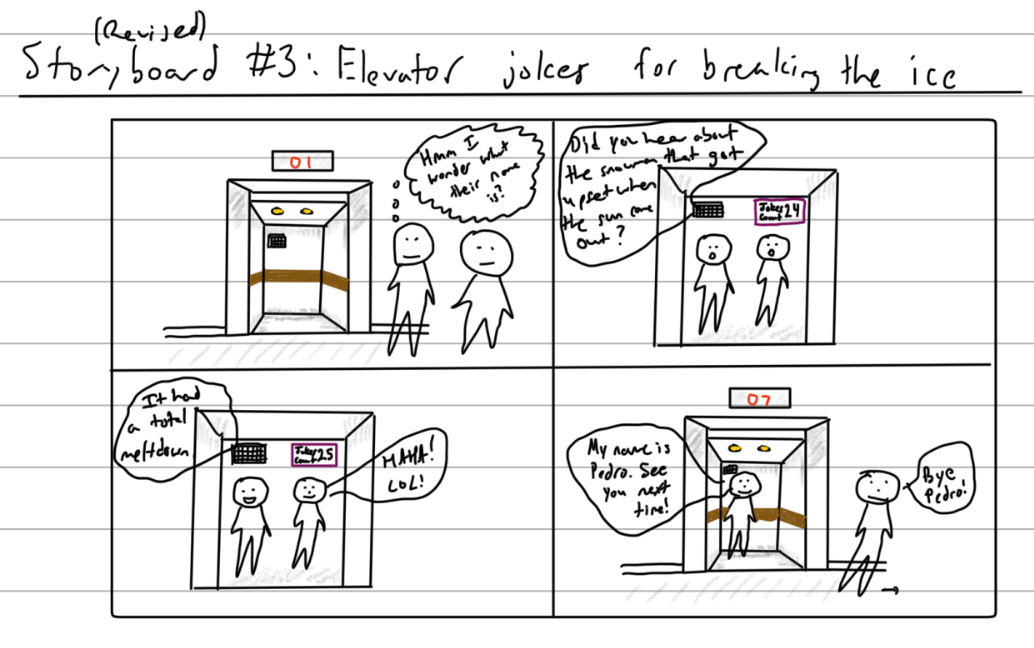 (Revised)
Storyboard #3: Elevator jokes for breaking the ice
01
Hmm I
wonder what
their name
is?
Did you hear about
the snowman that got
upset when
the sun came
out?
Jokes
Count 24
It had
a total
meltdown
Jokes
Count 25
HAHA!
LOL!
07
My name is
Pedro. See
you next
time!
Bye
Pedro!